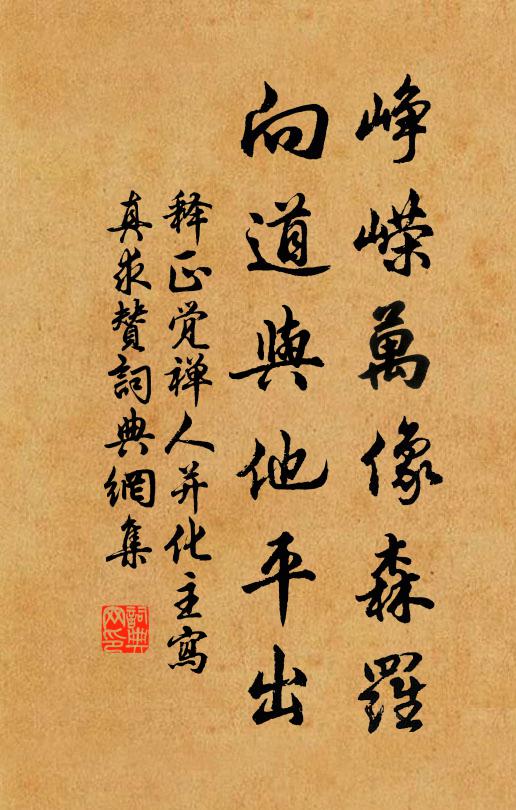 峥嵘萬像森羅
向道與他平出
释正觉禅人并化主寫
真求贊詞典網集
詞典網印